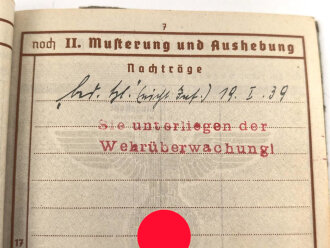 7
noch II. Musterung und Aushebung
Nachträge
„bed. tgl." (nicht Inf.) 19. I. 39
Sie unterliegen der
Wehrüberwachung!
17